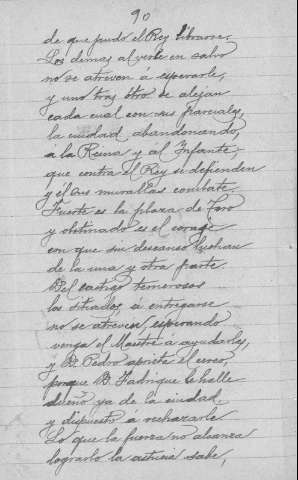 90
de que pudo el Rey librarse.
Los demas al verle en salvo
no se atreven a esperarle,
y uno tras otro se alejan
cada cual con sus parciales,
la ciudad abandonando,
á la Reina y al Infante,
que contra el Rey se defienden
y él sus murallas combate.
Fuerte es la plaza de Toro
y obstinado es el corage
con que sin descanso luchan
de la una y otra parte
Del castigo temerosos
los sitiados, á entregarse
no se atreven, esperando
venga el Maestre á ayudarles,
y D. Pedro aprieta el cerco,
porque D. Fadrique le halle
dueño ya de la ciudad
y dispuesto á rechazarle
Lo que la fuerza no alcanza
lograrlo la astucia sabe,